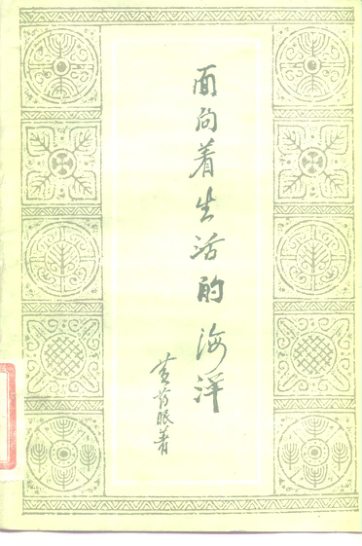 面向着生活的海洋
黄药眠著